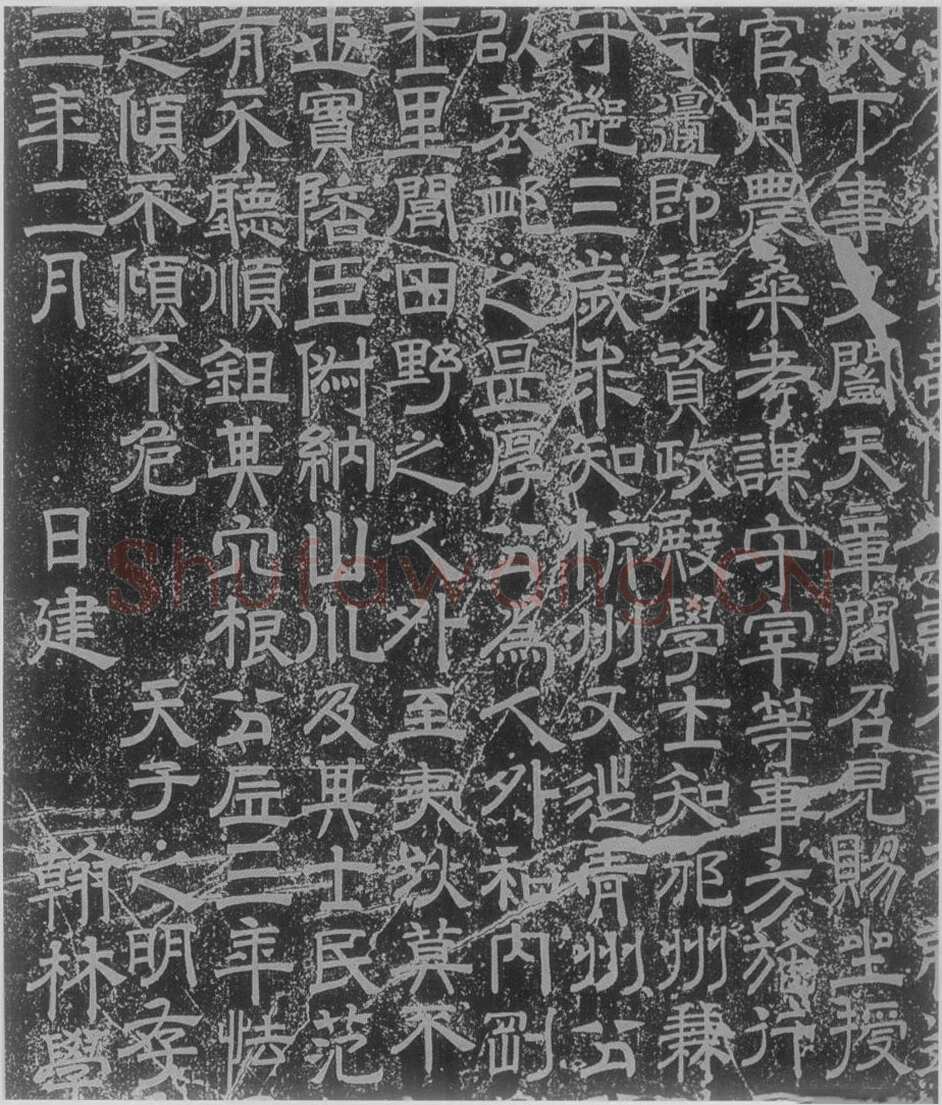 天下事又開天章閣召見賜坐授
官用農桑考課守宰等事方施行
守邊即拜資政殿學士知邠州兼
守鄧三歲求知杭州又徙青州公
以哀卹之是厚公為人外和內剛
士里閭田野之人外至夷狄莫不
世實陪臣附納山川及其士民范
有不聽順鉏其穴根公居三年怯
是傾不傾不危 天子之明存
三年二月 日建 翰林學
Shufawang.CN